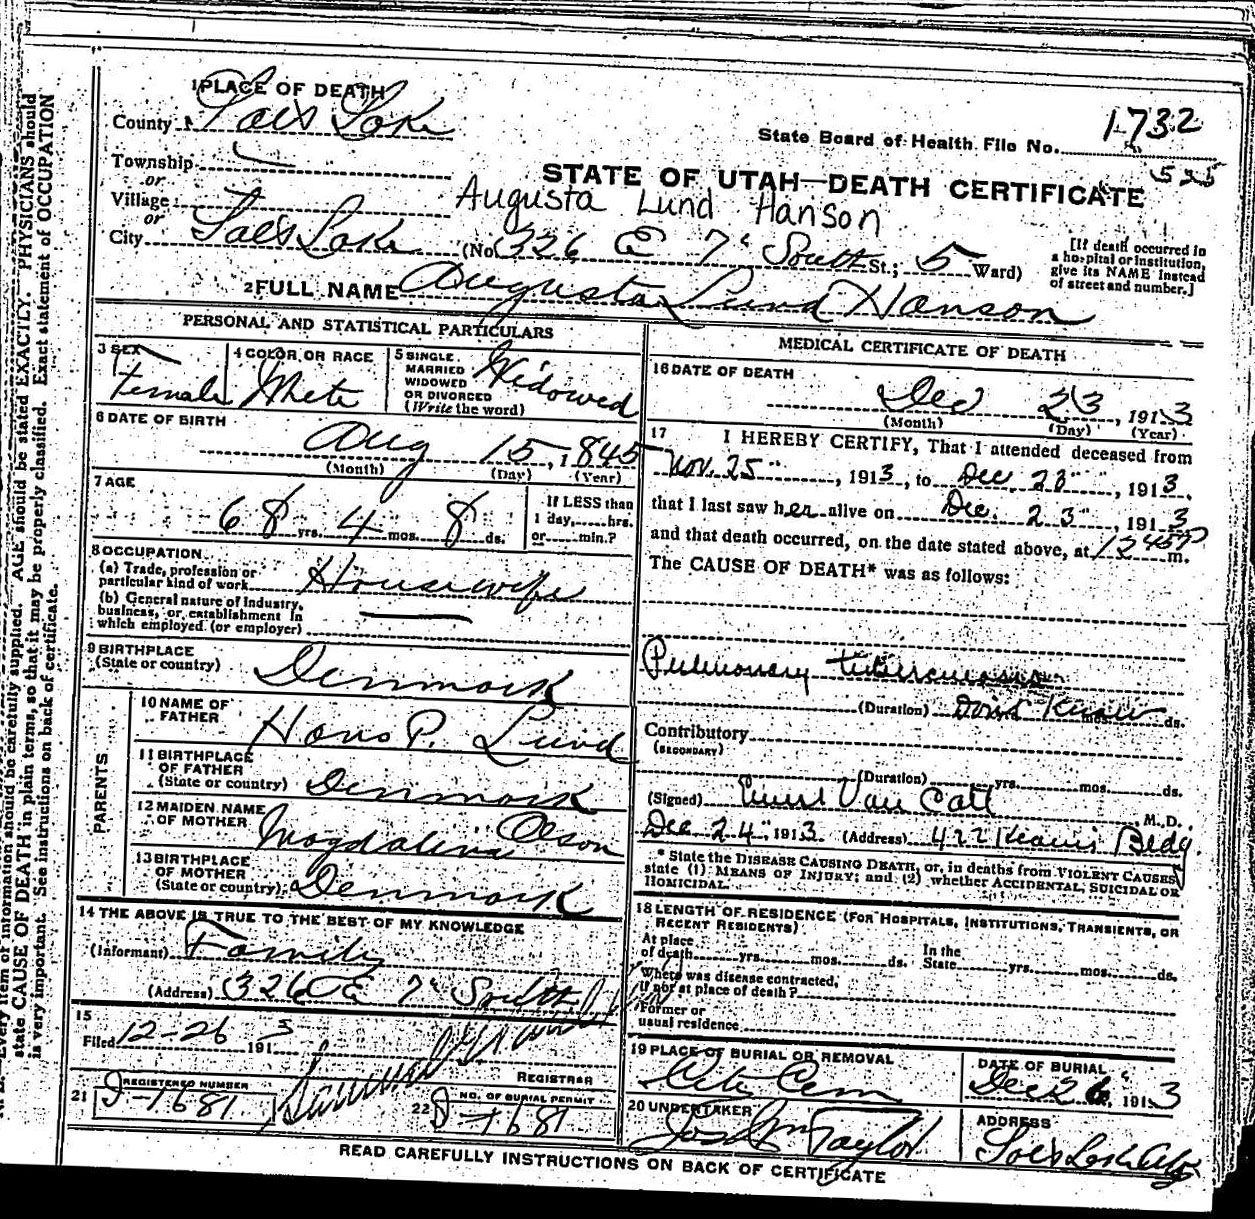 1 PLACE OF DEATH
County Salt Lake
State Board of Health File No. 1732
Township
or
STATE OF UTAH—DEATH CERTIFICATE
Village
or
Augusta Lund Hanson
City Salt Lake (No 326 E 7" South St.; 5 Ward)
[If death occurred in
a hospital or institution,
give its NAME instead
of street and number.]
2 FULL NAME Augusta Lund Hanson
PERSONAL AND STATISTICAL PARTICULARS
3 SEX
Female
4 COLOR OR RACE
White
5 SINGLE
MARRIED
WIDOWED
OR DIVORCED
(Write the word)
Widowed
6 DATE OF BIRTH
Aug 15, 1845
(Month) (Day) (Year)
7 AGE
68 yrs. 4 mos. 8 ds.
If LESS than
1 day, hrs.
or min.?
8 OCCUPATION
(a) Trade, profession or
particular kind of work Housewife
(b) General nature of industry,
business, or establishment in
which employed (or employer)
9 BIRTHPLACE
(State or country) Denmark
PARENTS
10 NAME OF
FATHER Hans P. Lund
11 BIRTHPLACE
OF FATHER
(State or country) Denmark
12 MAIDEN NAME
OF MOTHER Magdalina Olson
13 BIRTHPLACE
OF MOTHER
(State or country) Denmark
14 THE ABOVE IS TRUE TO THE BEST OF MY KNOWLEDGE
(Informant) Family
(Address) 326 E 7" South
15
Filed 12-26 1913
REGISTRAR
21 REGISTERED NUMBER
D-1681
22 NO. OF BURIAL PERMIT
D-1681
MEDICAL CERTIFICATE OF DEATH
16 DATE OF DEATH
Dec 23, 1913
(Month) (Day) (Year)
17 I HEREBY CERTIFY, That I attended deceased from
Nov. 25", 1913, to Dec. 23", 1913,
that I last saw her alive on Dec. 23", 1913
and that death occurred, on the date stated above, at 1245P m.
The CAUSE OF DEATH* was as follows:
Pulmonary tuberculosis
(Duration) Don't Know mos. ds.
Contributory
(SECONDARY)
(Duration) yrs. mos. ds.
(Signed) Van Cott M.D.
Dec 24" 1913 (Address) 422 Kearns Bldg.
* State the DISEASE CAUSING DEATH, or, in deaths from VIOLENT CAUSES,
state (1) MEANS OF INJURY; and (2) whether ACCIDENTAL, SUICIDAL OR
HOMICIDAL.
18 LENGTH OF RESIDENCE (FOR HOSPITALS, INSTITUTIONS, TRANSIENTS, OR
RECENT RESIDENTS)
At place
of death yrs. mos. ds.
In the
State yrs. mos. ds.
Where was disease contracted,
If not at place of death?
Former or
usual residence
19 PLACE OF BURIAL OR REMOVAL
City Cem
DATE OF BURIAL
Dec 26, 1913
20 UNDERTAKER
Jos Wm Taylor
ADDRESS
Salt Lake City
READ CAREFULLY INSTRUCTIONS ON BACK OF CERTIFICATE
Every item of information should be carefully supplied. AGE should be stated EXACTLY. PHYSICIANS should
state CAUSE OF DEATH in plain terms, so that it may be properly classified. Exact statement of OCCUPATION
is very important. See instructions on back of certificate.